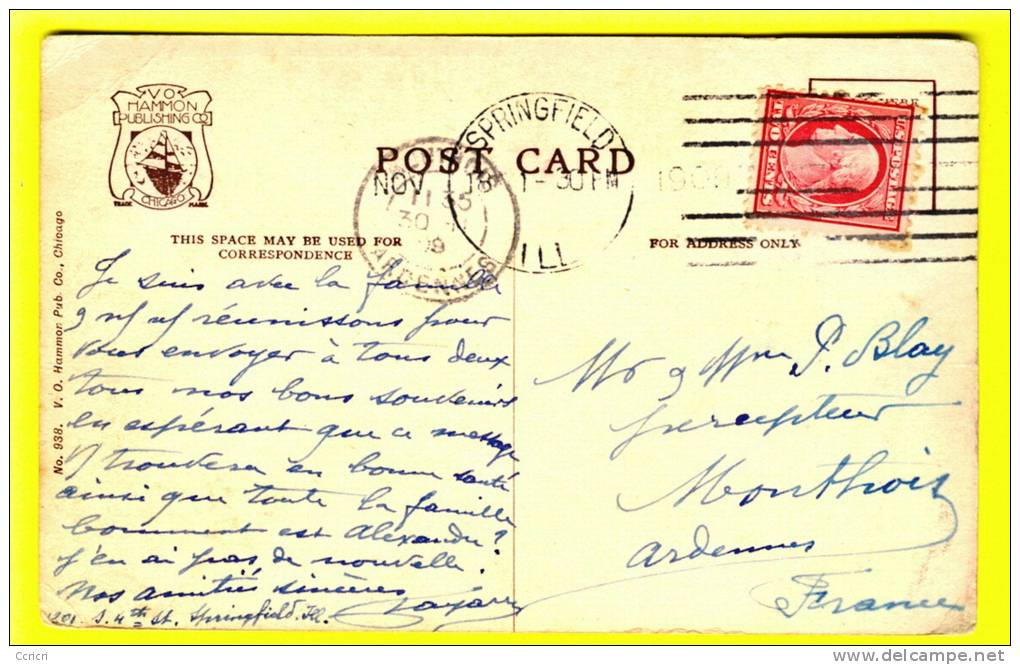 V O
HAMMON
PUBLISHING CO
CHICAGO
TRADE MARK
POST CARD
SPRINGFIELD
ILL
NOV 18 1-30 PM 1909
ARDENNES
TWO CENTS
U.S. POSTAGE
THIS SPACE MAY BE USED FOR
CORRESPONDENCE
FOR ADDRESS ONLY
No. 938. V. O. Hammon Pub. Co., Chicago
Je suis avec la famille
réunissons pour
vous envoyer à tous deux
tous nos bons souvenirs
en espérant que ce message
trouvera en bonne santé
ainsi que toute la famille
Comment est Alexandre?
J'en ai pas de nouvelle.
Nos amitiés sincères
S. 4th St. Springfield. Ill.
Mr & Mme P. Blay
percepteur
Monthois
Ardennes
France
Ccricri
www.delcampe.net